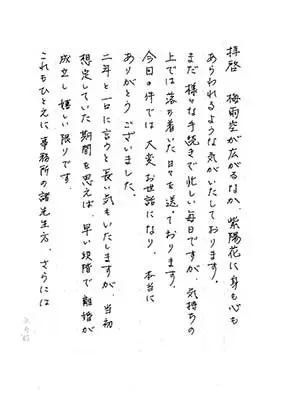 拝啓　梅雨空が広がるなか、紫陽花に身も心も
あらわれるような気がいたしております。
まだ様々な手続きで忙しい毎日ですが、気持ちの
上では落ち着いた日々を送っております。
今回の件では大変お世話になり、本当に
ありがとうございました。
二年と一口に言うと長い気もいたしますが、当初
想定していた期間を思えば、早い段階で離婚が
成立し嬉しい限りです。
これもひとえに事務所の諸先生方、さらには